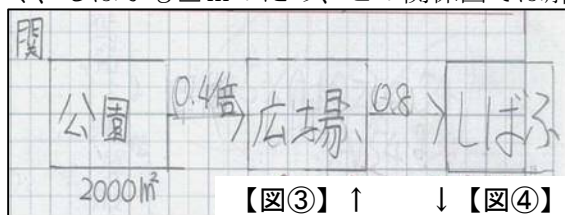 関
公園 0.4倍 広場 0.8 しばふ
2000m²
【図③】 ↑ ↓ 【図④】